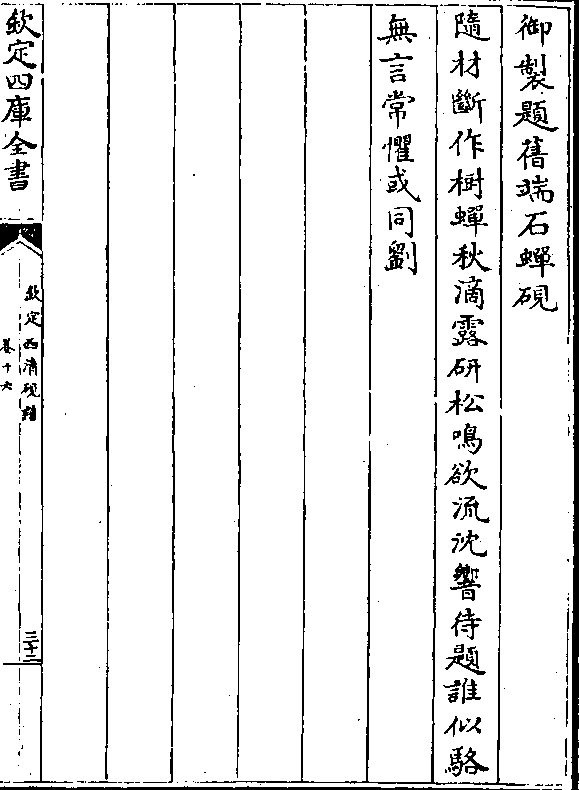 御製題舊端石蟬硯
隨材斲作樹蟬秋滴露研松鳴欲流沈響待題誰似駱
無言常懼或同劉
欽定四庫全書
欽定西清硯譜
卷十六
三十二